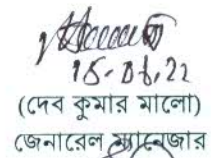 15-06.22
(দেব কুমার মালো)
জেনারেল ম্যানেজার